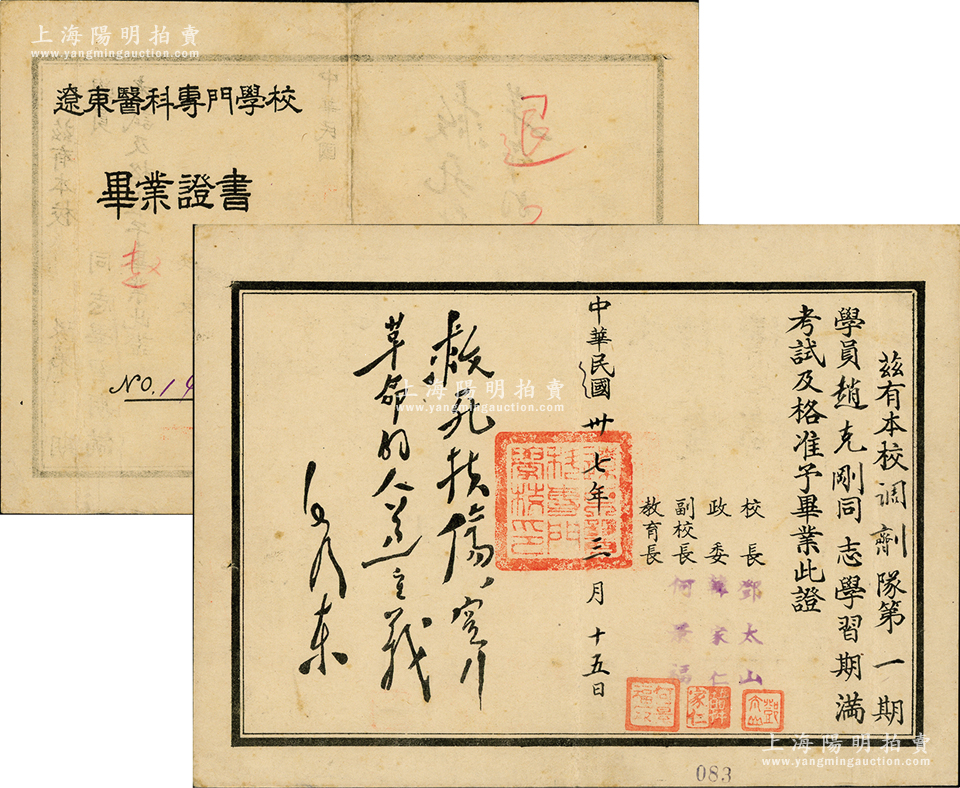 上海陽明拍賣
www.yangmingauction.com
遼東醫科專門學校
畢業證書
退
NO.19
茲有本校調劑隊第一期
學員趙克剛同志學習期滿
考試及格准予畢業此證
校長鄧太山
政委韓家仁
副校長何景福
教育長
中華民國卅七年三月十五日
救死扶傷,實行
革命的人道主義
毛澤東
遼東醫科專門學校印
083
上海陽明拍賣
www.yangmingauction.com